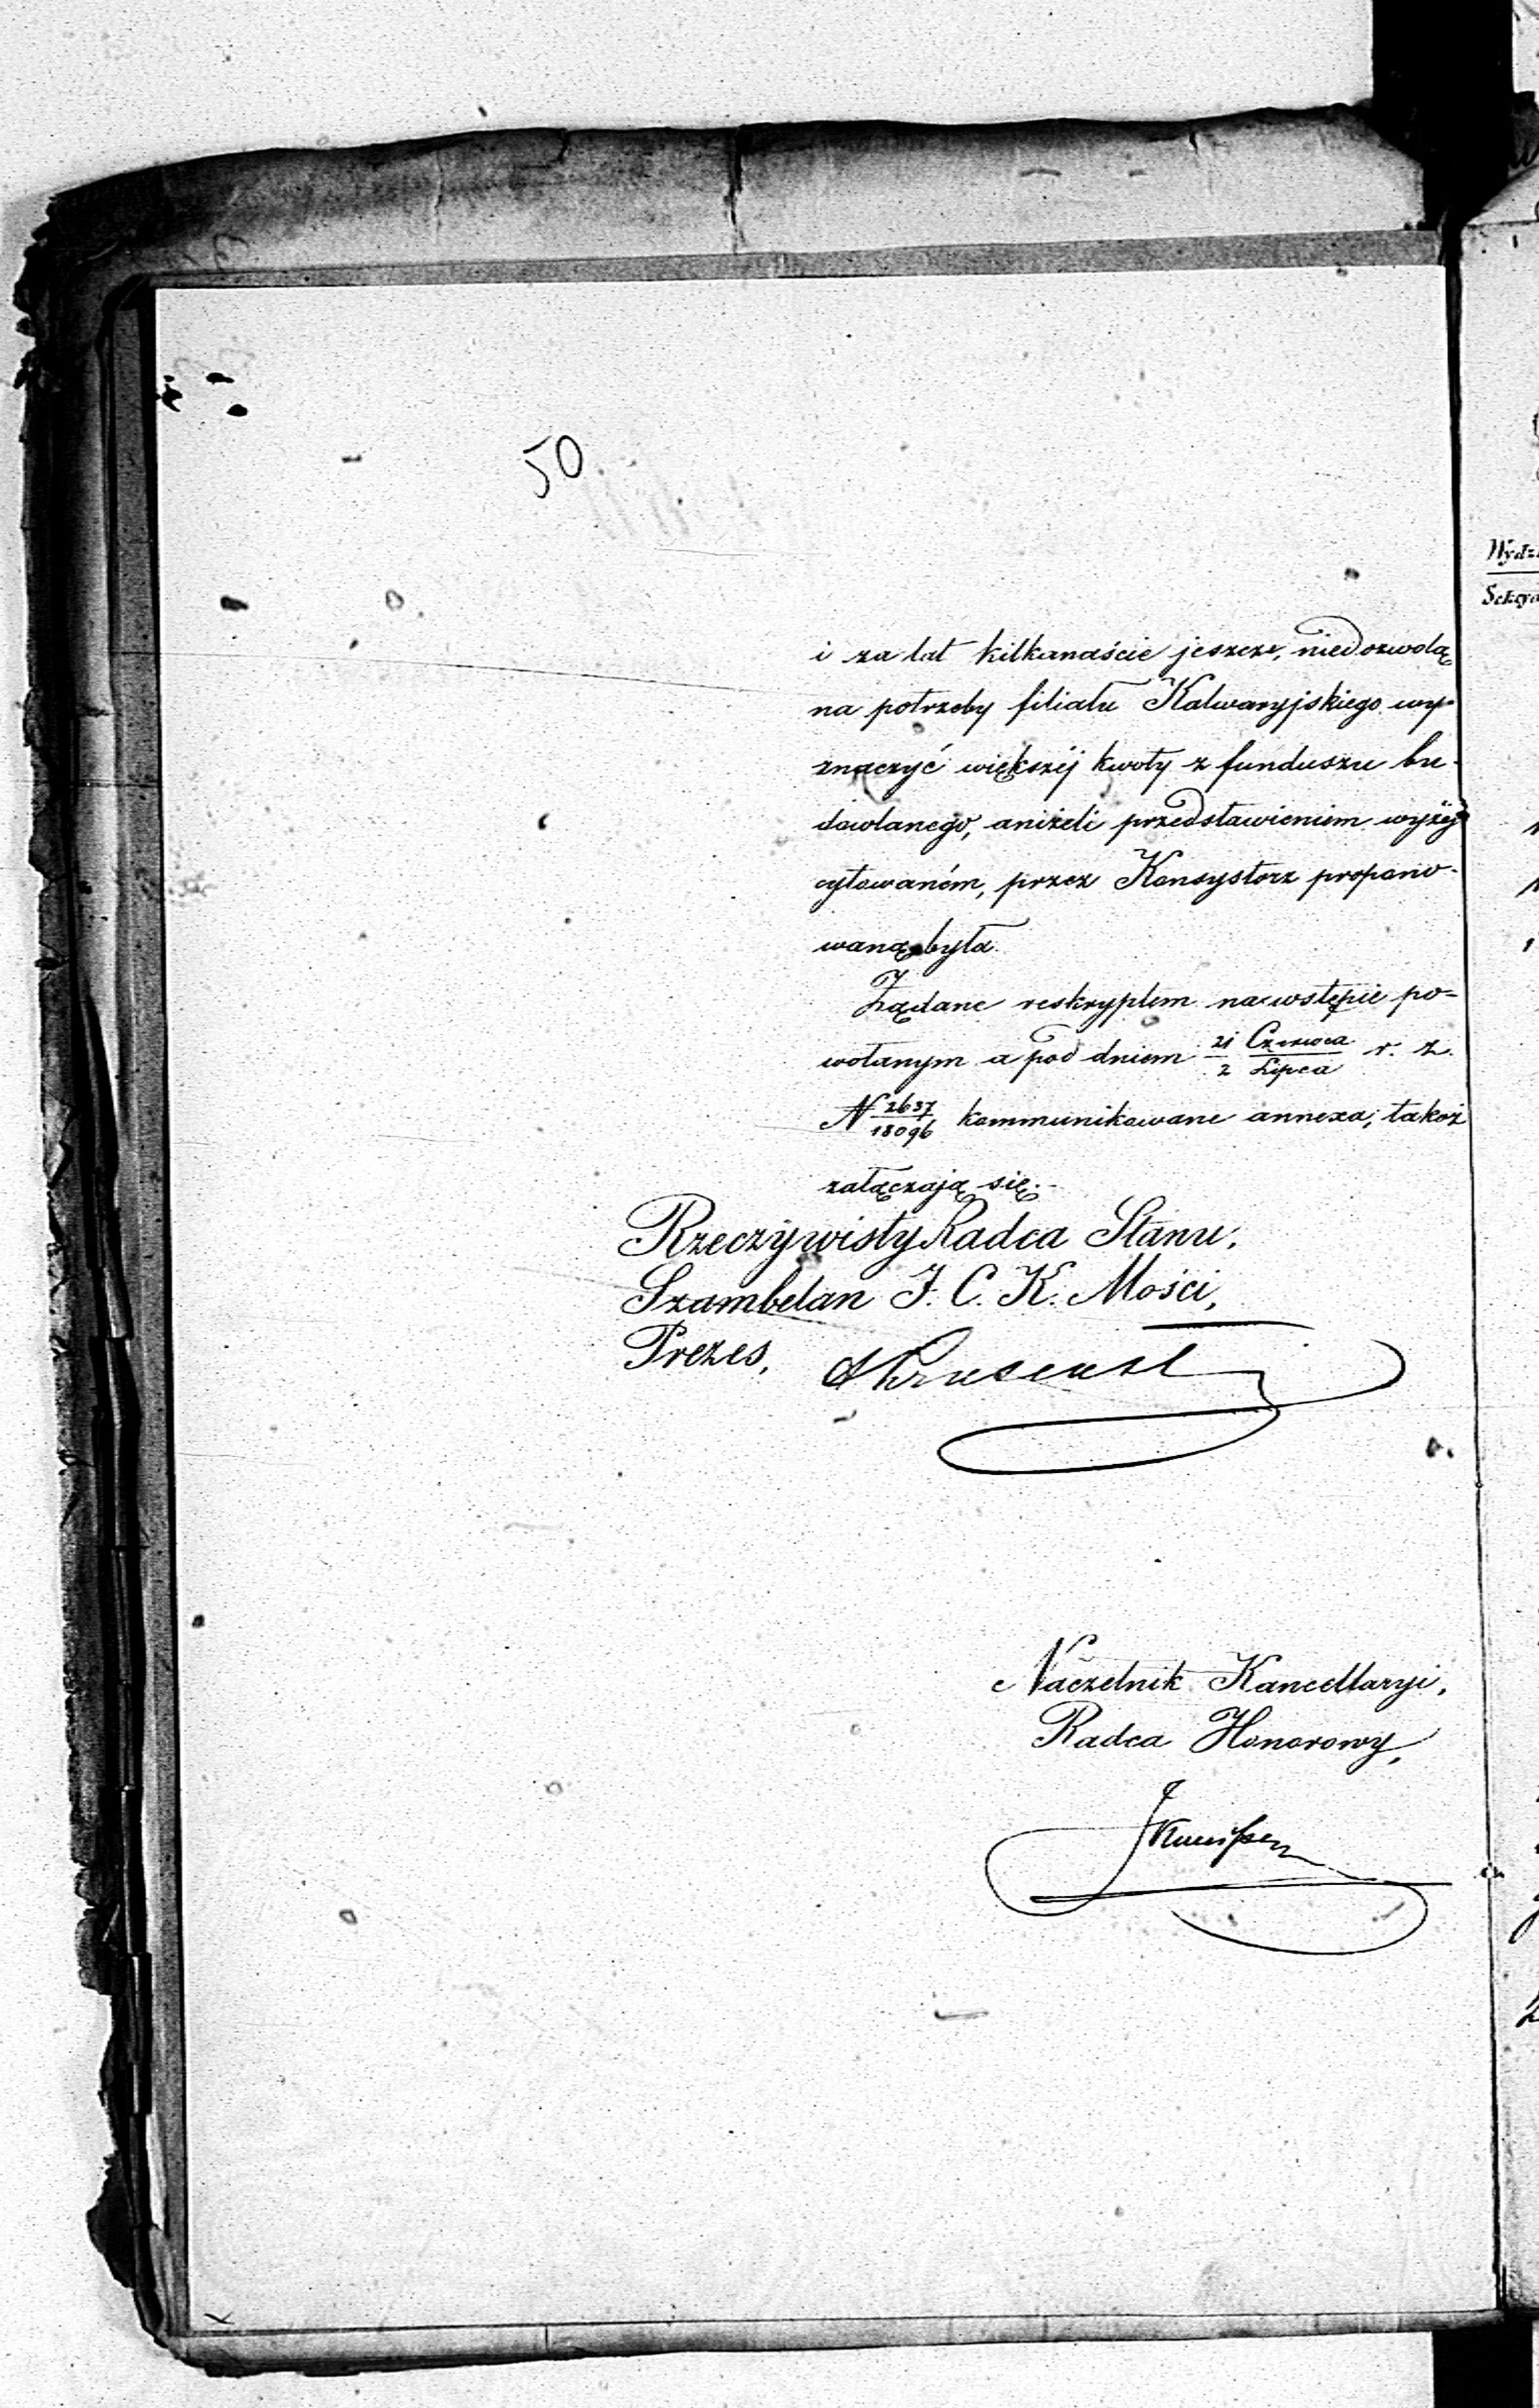 50
i za lat kilkanaście jeszcze, niedozwolą
na potrzeby filiału Kalwaryjskiego wy-
znaczyć większéj kwoty z funduszu bu-
dowlanego, aniżeli przedstawieniem wyżéj
cytowaném, przez Konsystorz propono-
waną była.
Żądane reskryptem na wstępie po-
wołanym a pod dniem 21 Czerwca / 2 Lipca r. z.
N 2637/18096 kommunikowane annexa, takoż
załączają się.-
Rzeczywisty Radca Stanu,
Szambelan J. C. K. Mości,
Prezes,
Naczelnik Kancellaryi,
Radca Honorowy,
Wydz
Sekcya